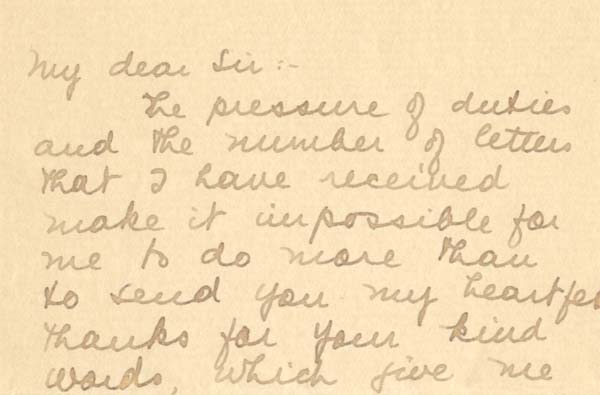 My dear Sir:-
The pressure of duties
and the number of letters
that I have received
make it impossible for
me to do more than
to send you my heartfel
thanks for your kind
words, which give me